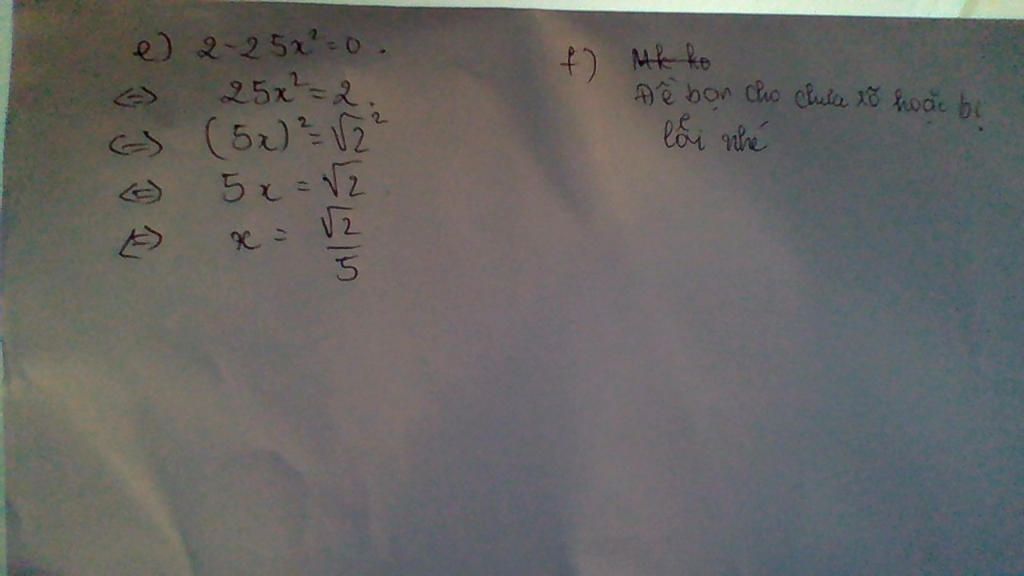 e) 2-25x²=0.
<=> 25x²=2.
<=> (5x)²=√2²
<=> 5x=√2
<=> x=√2/5
f) Mk ko
Đề bạn cho chưa rõ hoặc bị
lỗi nhé